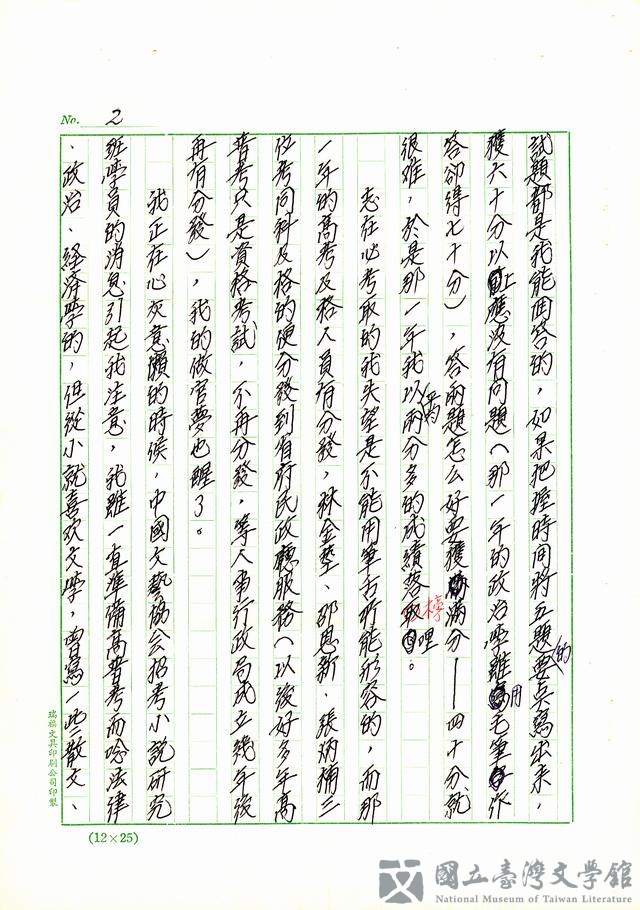 No. 2
試題都是我能回答的,如果把握時間將五題的要点寫出來,
獲六十分以上應沒有問題(那一年的政治學雖用毛筆作
答卻得七十分),答兩題怎么好要獲滿分——四十分就
很难,於是那一年我以兩分多的成績落榜哩。
志在必考取的我失望是不能用筆舌所能形容的,而那
一年的高考及格人員有分發,林金莖、邵恩新、張炳楠三
位考同科及格的便分發到省府民政廳服務(以後好多年高
普考只是資格考試,不再分發,等人事行政局成立幾年後
再有分發),我的做官夢也醒了。
我正在心灰意懶的時候,中國文藝協会招考小説研究
班學員的消息引起我注意,我雖一直準備高普考而唸法律
、政治、経済學的,但從小就喜欢文學,曾寫一些散文、
瑞福文具印刷公司印製
(12×25)
國立臺灣文學館
National Museum of Taiwan Literature